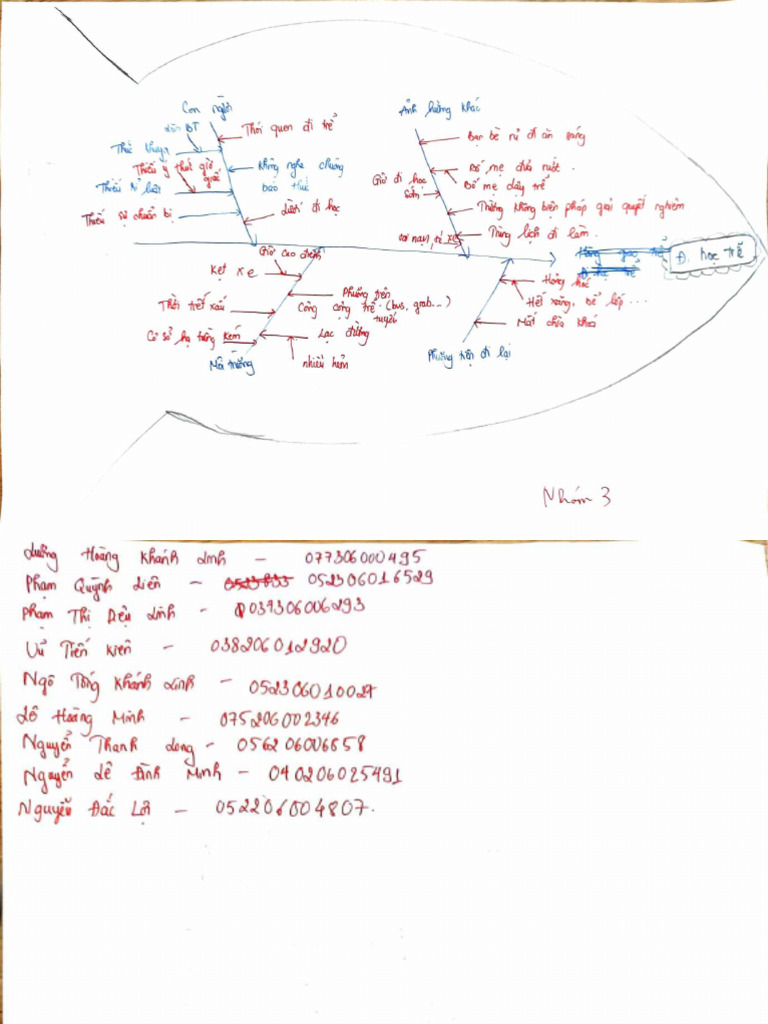 Con người
Ảnh hưởng khác
Thói quen đi trễ
Bạn bè rủ đi ăn sáng
Thức khuya
Thiếu ý thức giờ giấc
Không nghe chuông báo thức
Bố mẹ đưa rước.
Giờ đi học sớm
Bố mẹ dậy trễ
Thiếu kỉ luật
Lười đi học
Thiếu sự chuẩn bị
Thường không biện pháp giải quyết nghiêm
Trùng lịch đi làm.
Đi học trễ
Giờ cao điểm
Kẹt xe
Phương tiện
Công cộng trễ (bus, grab...)
tuyến
Hỏng hóc
Hết xăng, bể lốp...
Thời tiết xấu
Mất chìa khoá
Cơ sở hạ tầng kém
Lạc đường
nhiều hẻm
Môi trường
Phương tiện đi lại
Nhóm 3
Dương Hoàng Khánh Linh - 077306000495
Phạm Quỳnh Liên - 052306016529
Phạm Thị Diệu Linh - 037306006293
Vũ Tiến Kiên - 038206012920
Ngô Tống Khánh Linh - 052306010027
Lê Hoàng Minh - 075206002346
Nguyễn Thanh Long - 056206006658
Nguyễn Lê Đình Minh - 040206025491
Nguyễn Đắc Lợi - 052206004807.